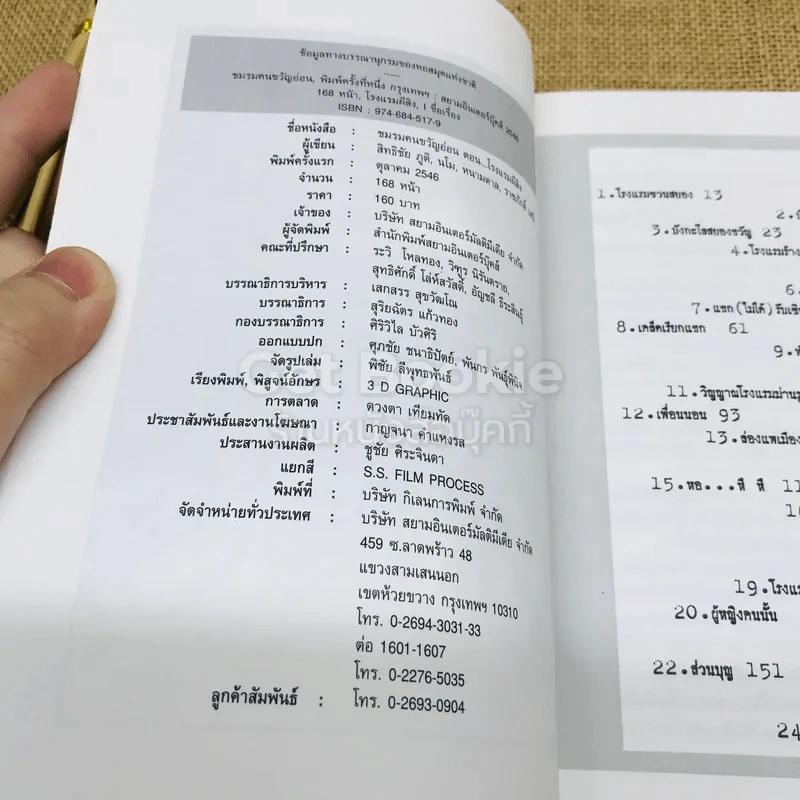 ข้อมูลทางบรรณานุกรมของหอสมุดแห่งชาติ
ชมรมคนขวัญอ่อน, พิมพ์ครั้งที่หนึ่ง กรุงเทพฯ : สยามอินเตอร์บุ๊คส์ 2546
168 หน้า, โรงแรมผีสิง, I ชื่อเรื่อง
ISBN : 974-684-517-9
ชื่อหนังสือ : ชมรมคนขวัญอ่อน ตอน...โรงแรมผีสิง
ผู้เขียน : สิทธิชัย ภูติ, นโม, หนามตาล,
พิมพ์ครั้งแรก : ตุลาคม 2546
จำนวน : 168 หน้า
ราคา : 160 บาท
เจ้าของ : บริษัท สยามอินเตอร์มัลติมีเดีย จำกัด
ผู้จัดพิมพ์ : สำนักพิมพ์สยามอินเตอร์บุ๊คส์
คณะที่ปรึกษา : ระวิ โหลทอง, วิฑูร นิรันตราย,
สุทธิศักดิ์ โล่ห์สวัสดิ์, อัญชลี ธีระสินธุ์
บรรณาธิการบริหาร : เสกสรร สุขวัฒโณ
บรรณาธิการ : สุริยฉัตร แก้วทอง
กองบรรณาธิการ : ศิริวิไล บัวศิริ
ออกแบบปก : ศุภชัย ชนาธิปัตย์, พันกร พันธุ์พินิจ
จัดรูปเล่ม : พิชัย ลีพุทธพันธ์
เรียงพิมพ์, พิสูจน์อักษร : 3 D GRAPHIC
การตลาด : ดวงตา เทียมทัด
ประชาสัมพันธ์และงานโฆษณา : กาญจนา คำแหงรส
ประสานงานผลิต : ชูชัย ศิระจินดา
แยกสี : S.S. FILM PROCESS
พิมพ์ที่ : บริษัท กิเลนการพิมพ์ จำกัด
จัดจำหน่ายทั่วประเทศ : บริษัท สยามอินเตอร์มัลติมีเดีย จำกัด
459 ซ.ลาดพร้าว 48
แขวงสามเสนนอก
เขตห้วยขวาง กรุงเทพฯ 10310
โทร. 0-2694-3031-33
ต่อ 1601-1607
โทร. 0-2276-5035
ลูกค้าสัมพันธ์ : โทร. 0-2693-0904
Get Bookie
ร้านหนังสือบุ๊คกี้
1.โรงแรมชวนสยอง 13
2.
3.บังกะโลสยองขวัญ 23
4.โรงแรมร้าง
6.
7.แขก(ไม่ได้)รับเชิญ
8.เคล็ดเรียกแขก 61
9.
11.วิญญาณโรงแรมม่านรูด
12.เพื่อนนอน 93
13.ล่องแพเมือง
15.หอ...ที่ ที่ 11
16
19.โรงแรม
20.ผู้หญิงคนนั้น
22.ส่วนบุญ 151
24